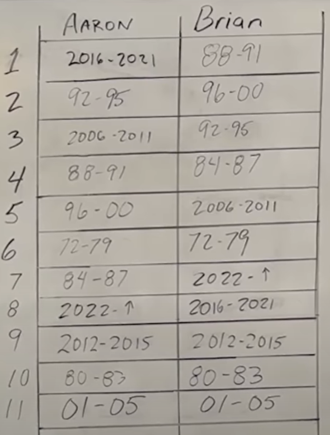 AARON Brian
1 2016-2021 88-91
2 92-95 96-00
3 2006-2011 92-95
4 88-91 84-87
5 96-00 2006-2011
6 72-79 72-79
7 84-87 2022-↑
8 2022-↑ 2016-2021
9 2012-2015 2012-2015
10 80-83 80-83
11 01-05 01-05